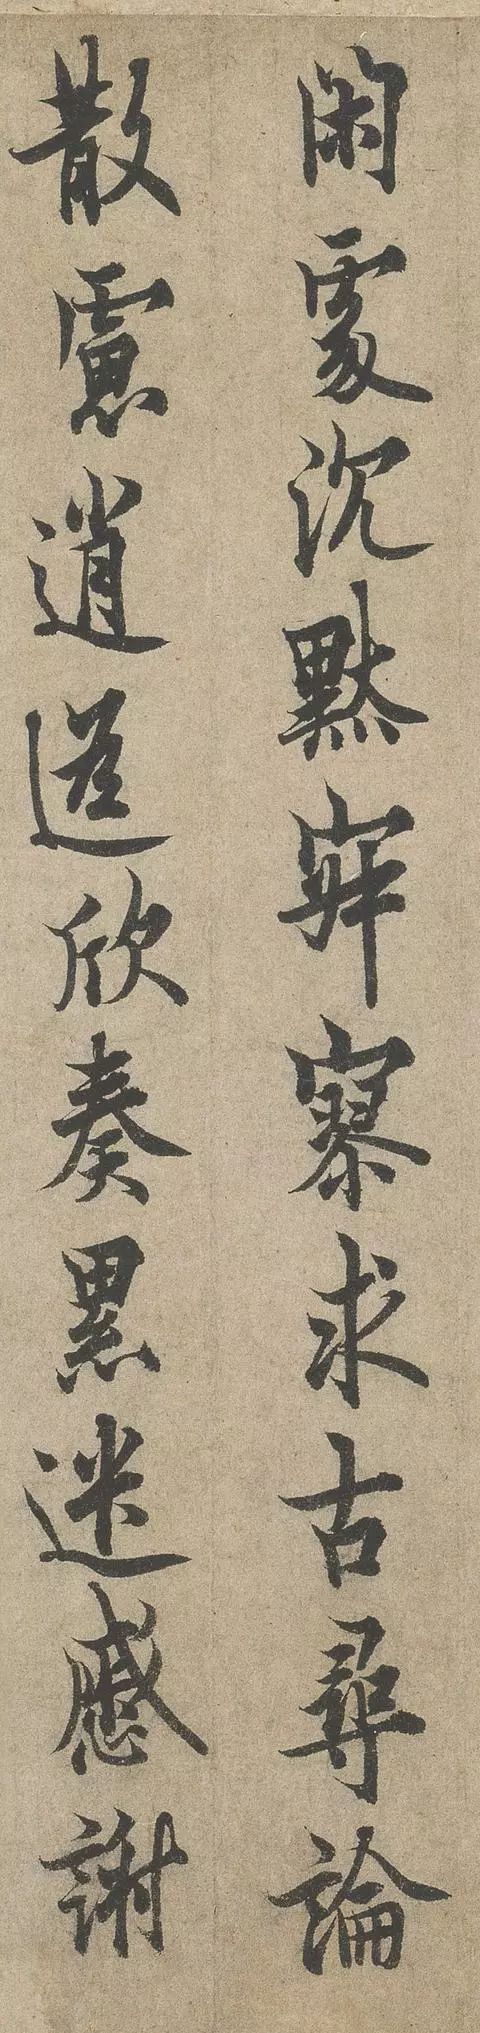 閑處沉默寂寥求古尋論
散慮逍遙欣奏累迷慼謝